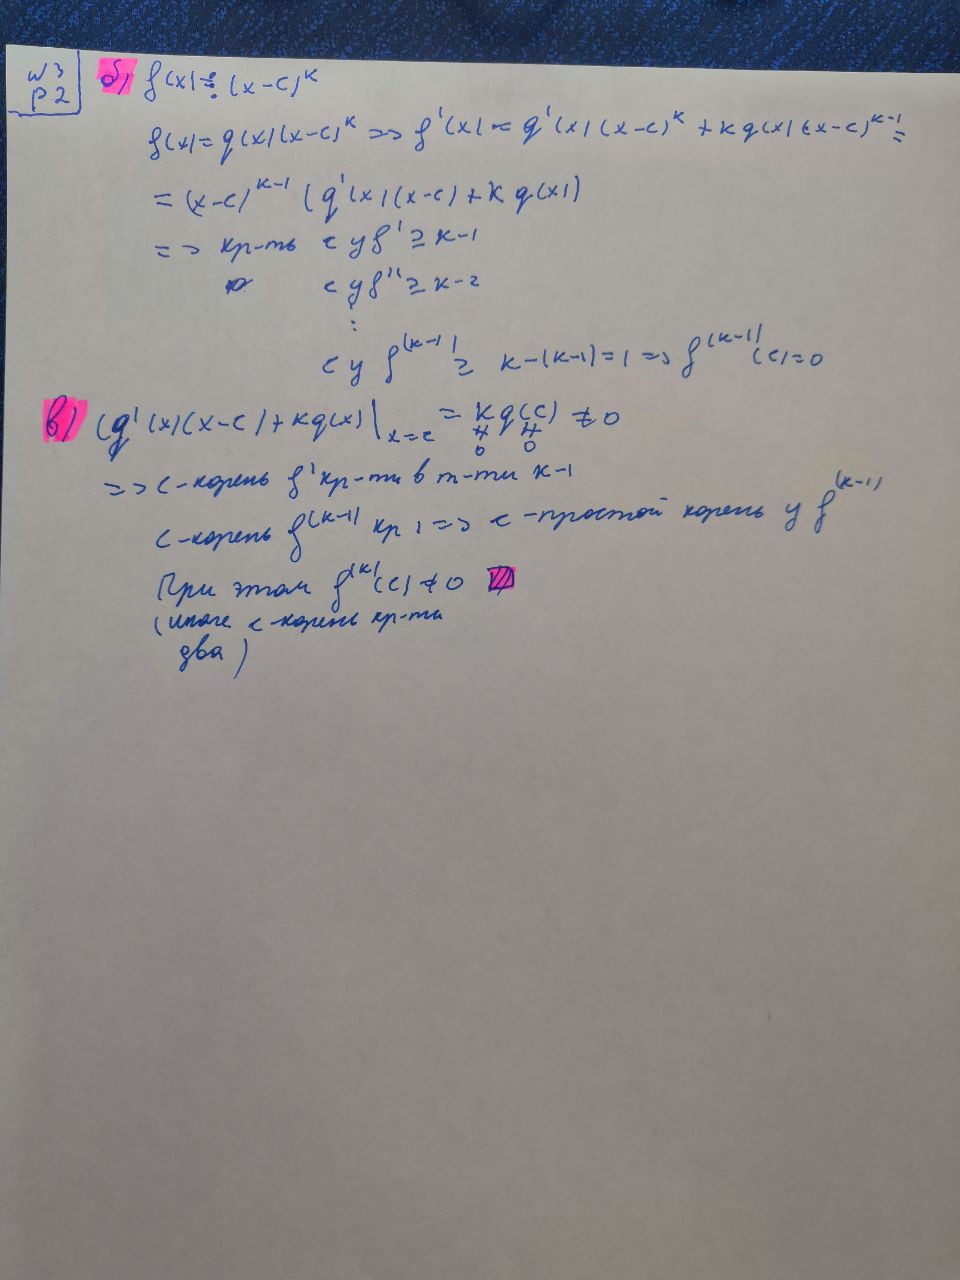 w3
p2
б) f(x) ⋮ (x-c)^k
f(x) = q(x)(x-c)^k => f'(x) = q'(x)(x-c)^k + k q(x)(x-c)^{k-1} =
= (x-c)^{k-1} (q'(x)(x-c) + k q(x))
=> кр-ть c у f' ≥ k-1
c у f'' ≥ k-2
⋮
c у f^{(k-1)} ≥ k-(k-1) = 1 => f^{(k-1)}(c) = 0
в) (q'(x)(x-c) + kq(x)) |_{x=c} = k q(c) ≠ 0
≠ ≠
0 0
=> c-корень f' кр-ти в т-ти k-1
c-корень f^{(k-1)} кр 1 => c-простой корень у f^{(k-1)}
При этом f^{(k)}(c) ≠ 0
(иначе c-корень кр-ти
два)